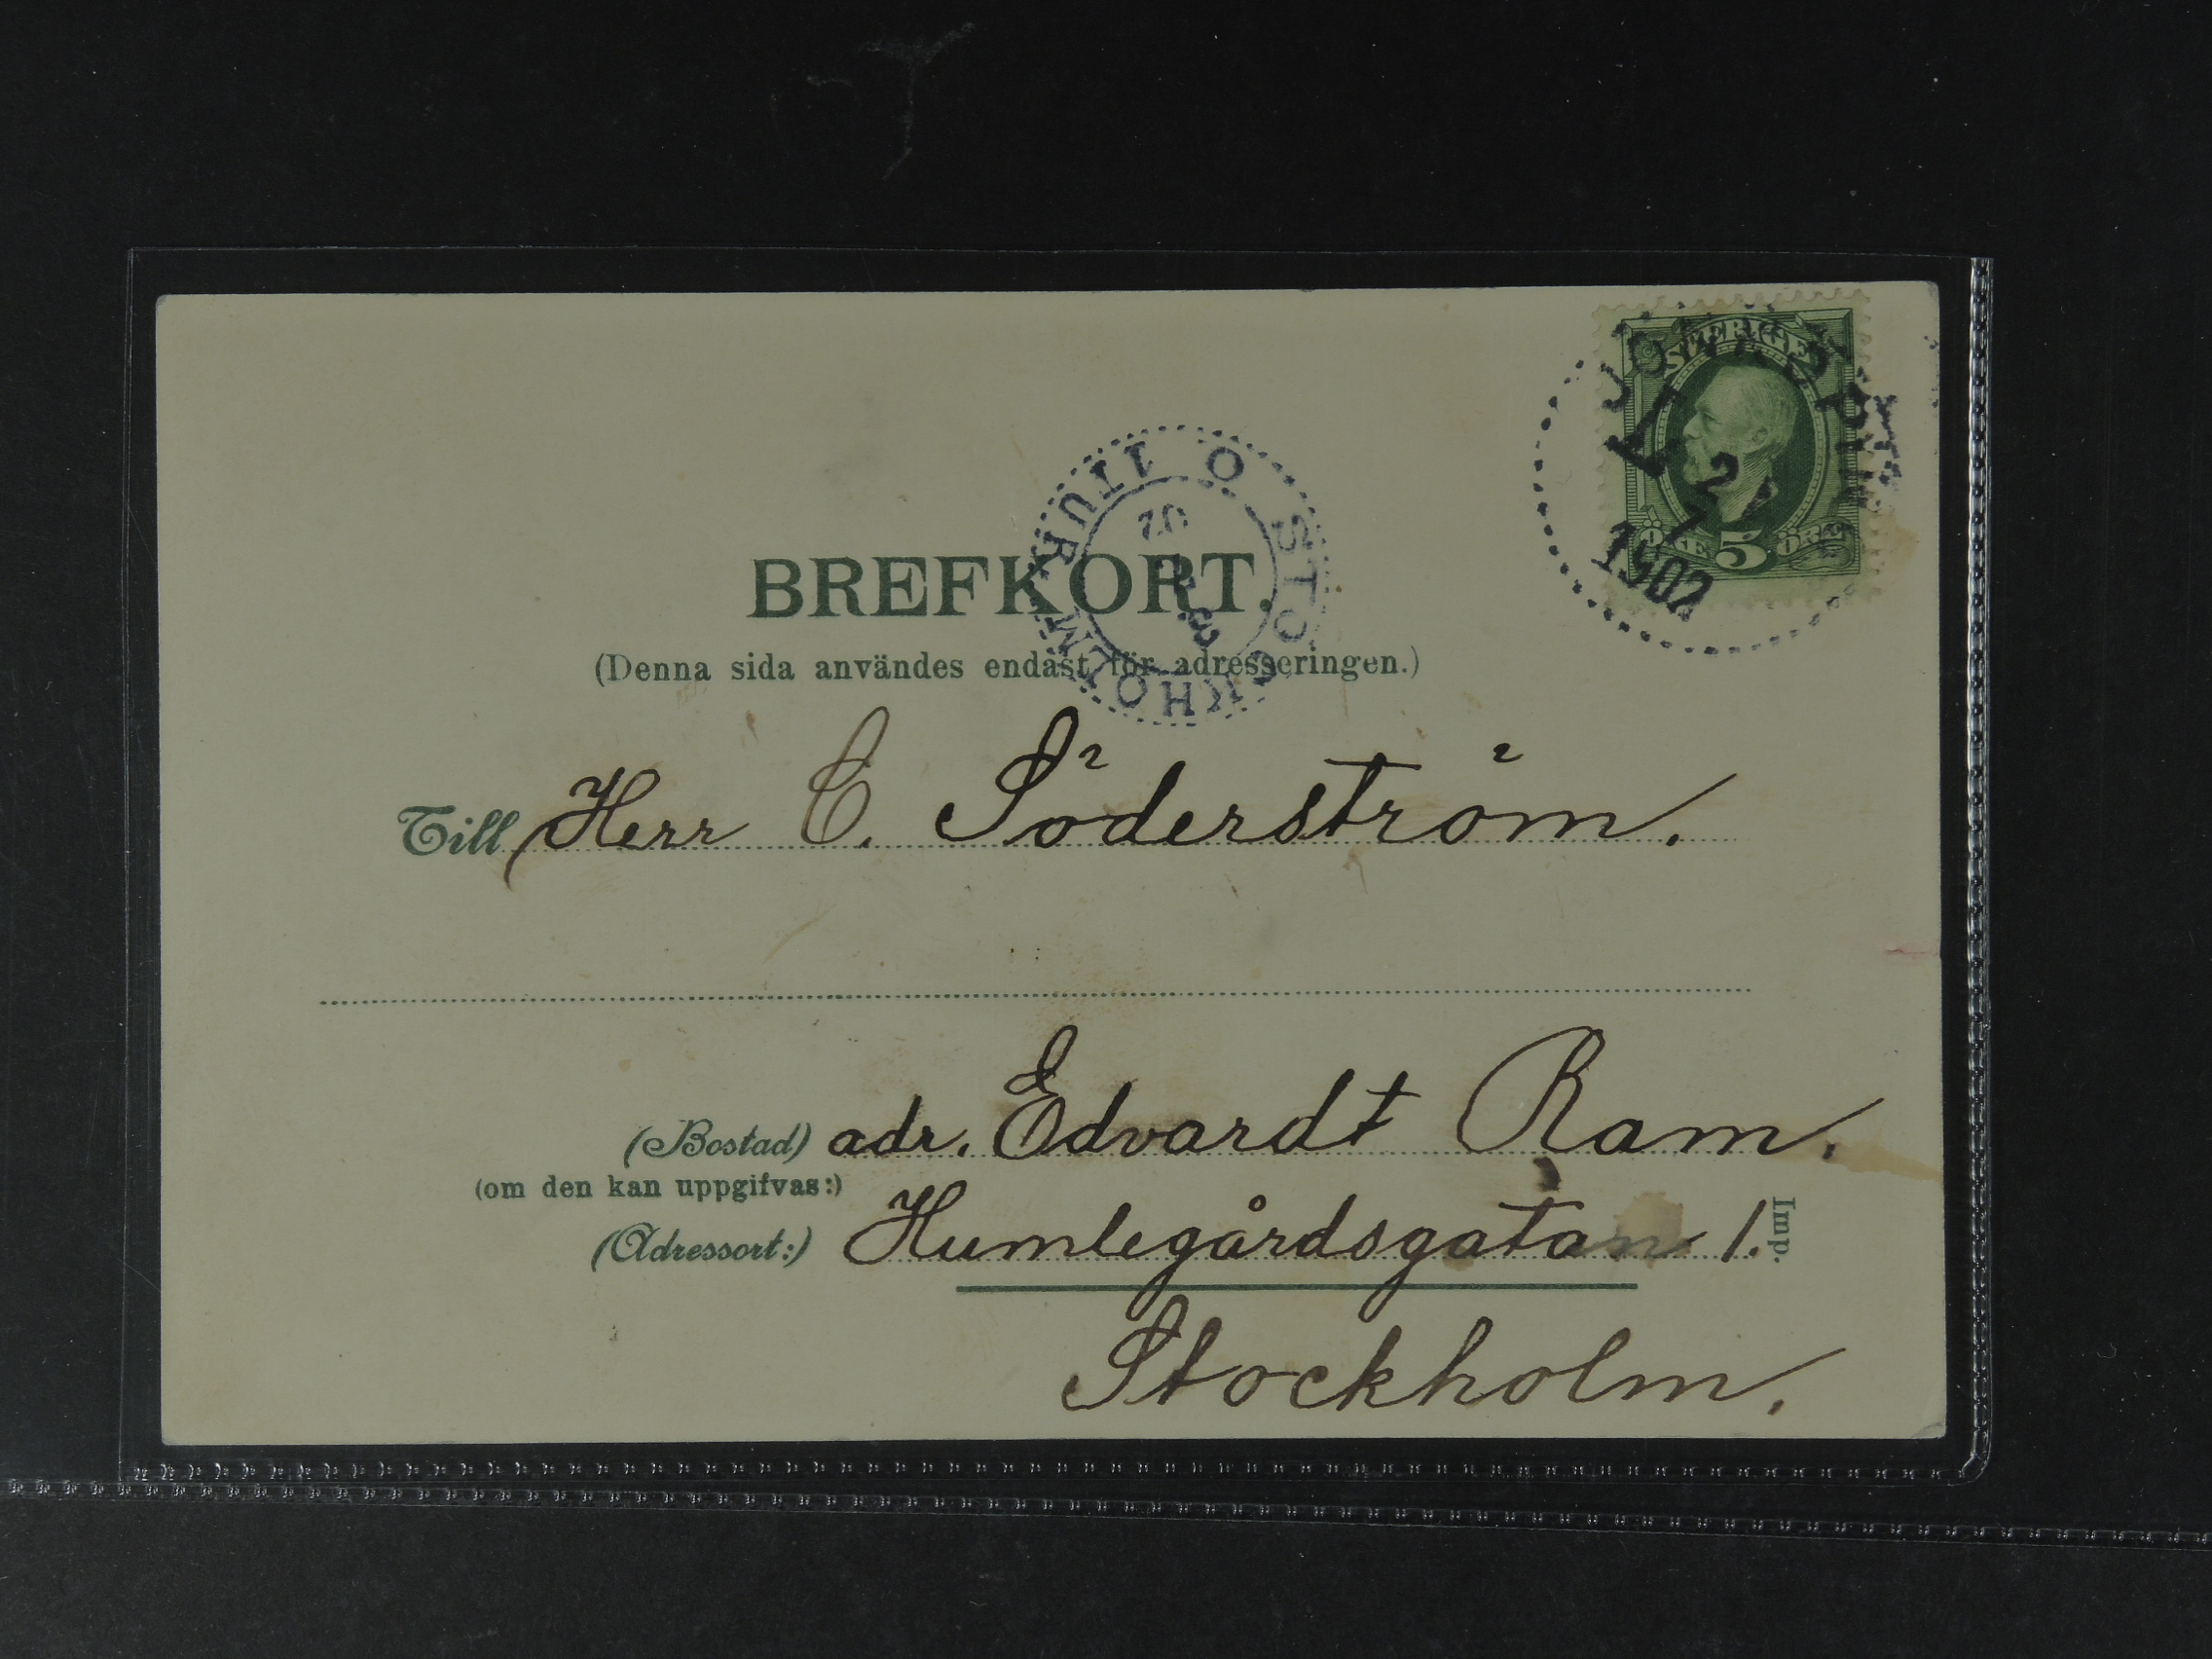 SVERIGE
ÖRE 5 ÖRE
2
7
1902
STOCKHOLM
BREFKORT.
(Denna sida användes endast för adresseringen.)
Till Herr C. Söderström.
(Bostad) adr. Edvardt Ram.
(om den kan uppgifvas:)
(Adressort:) Humlegårdsgatan 1.
Imp.
Stockholm.